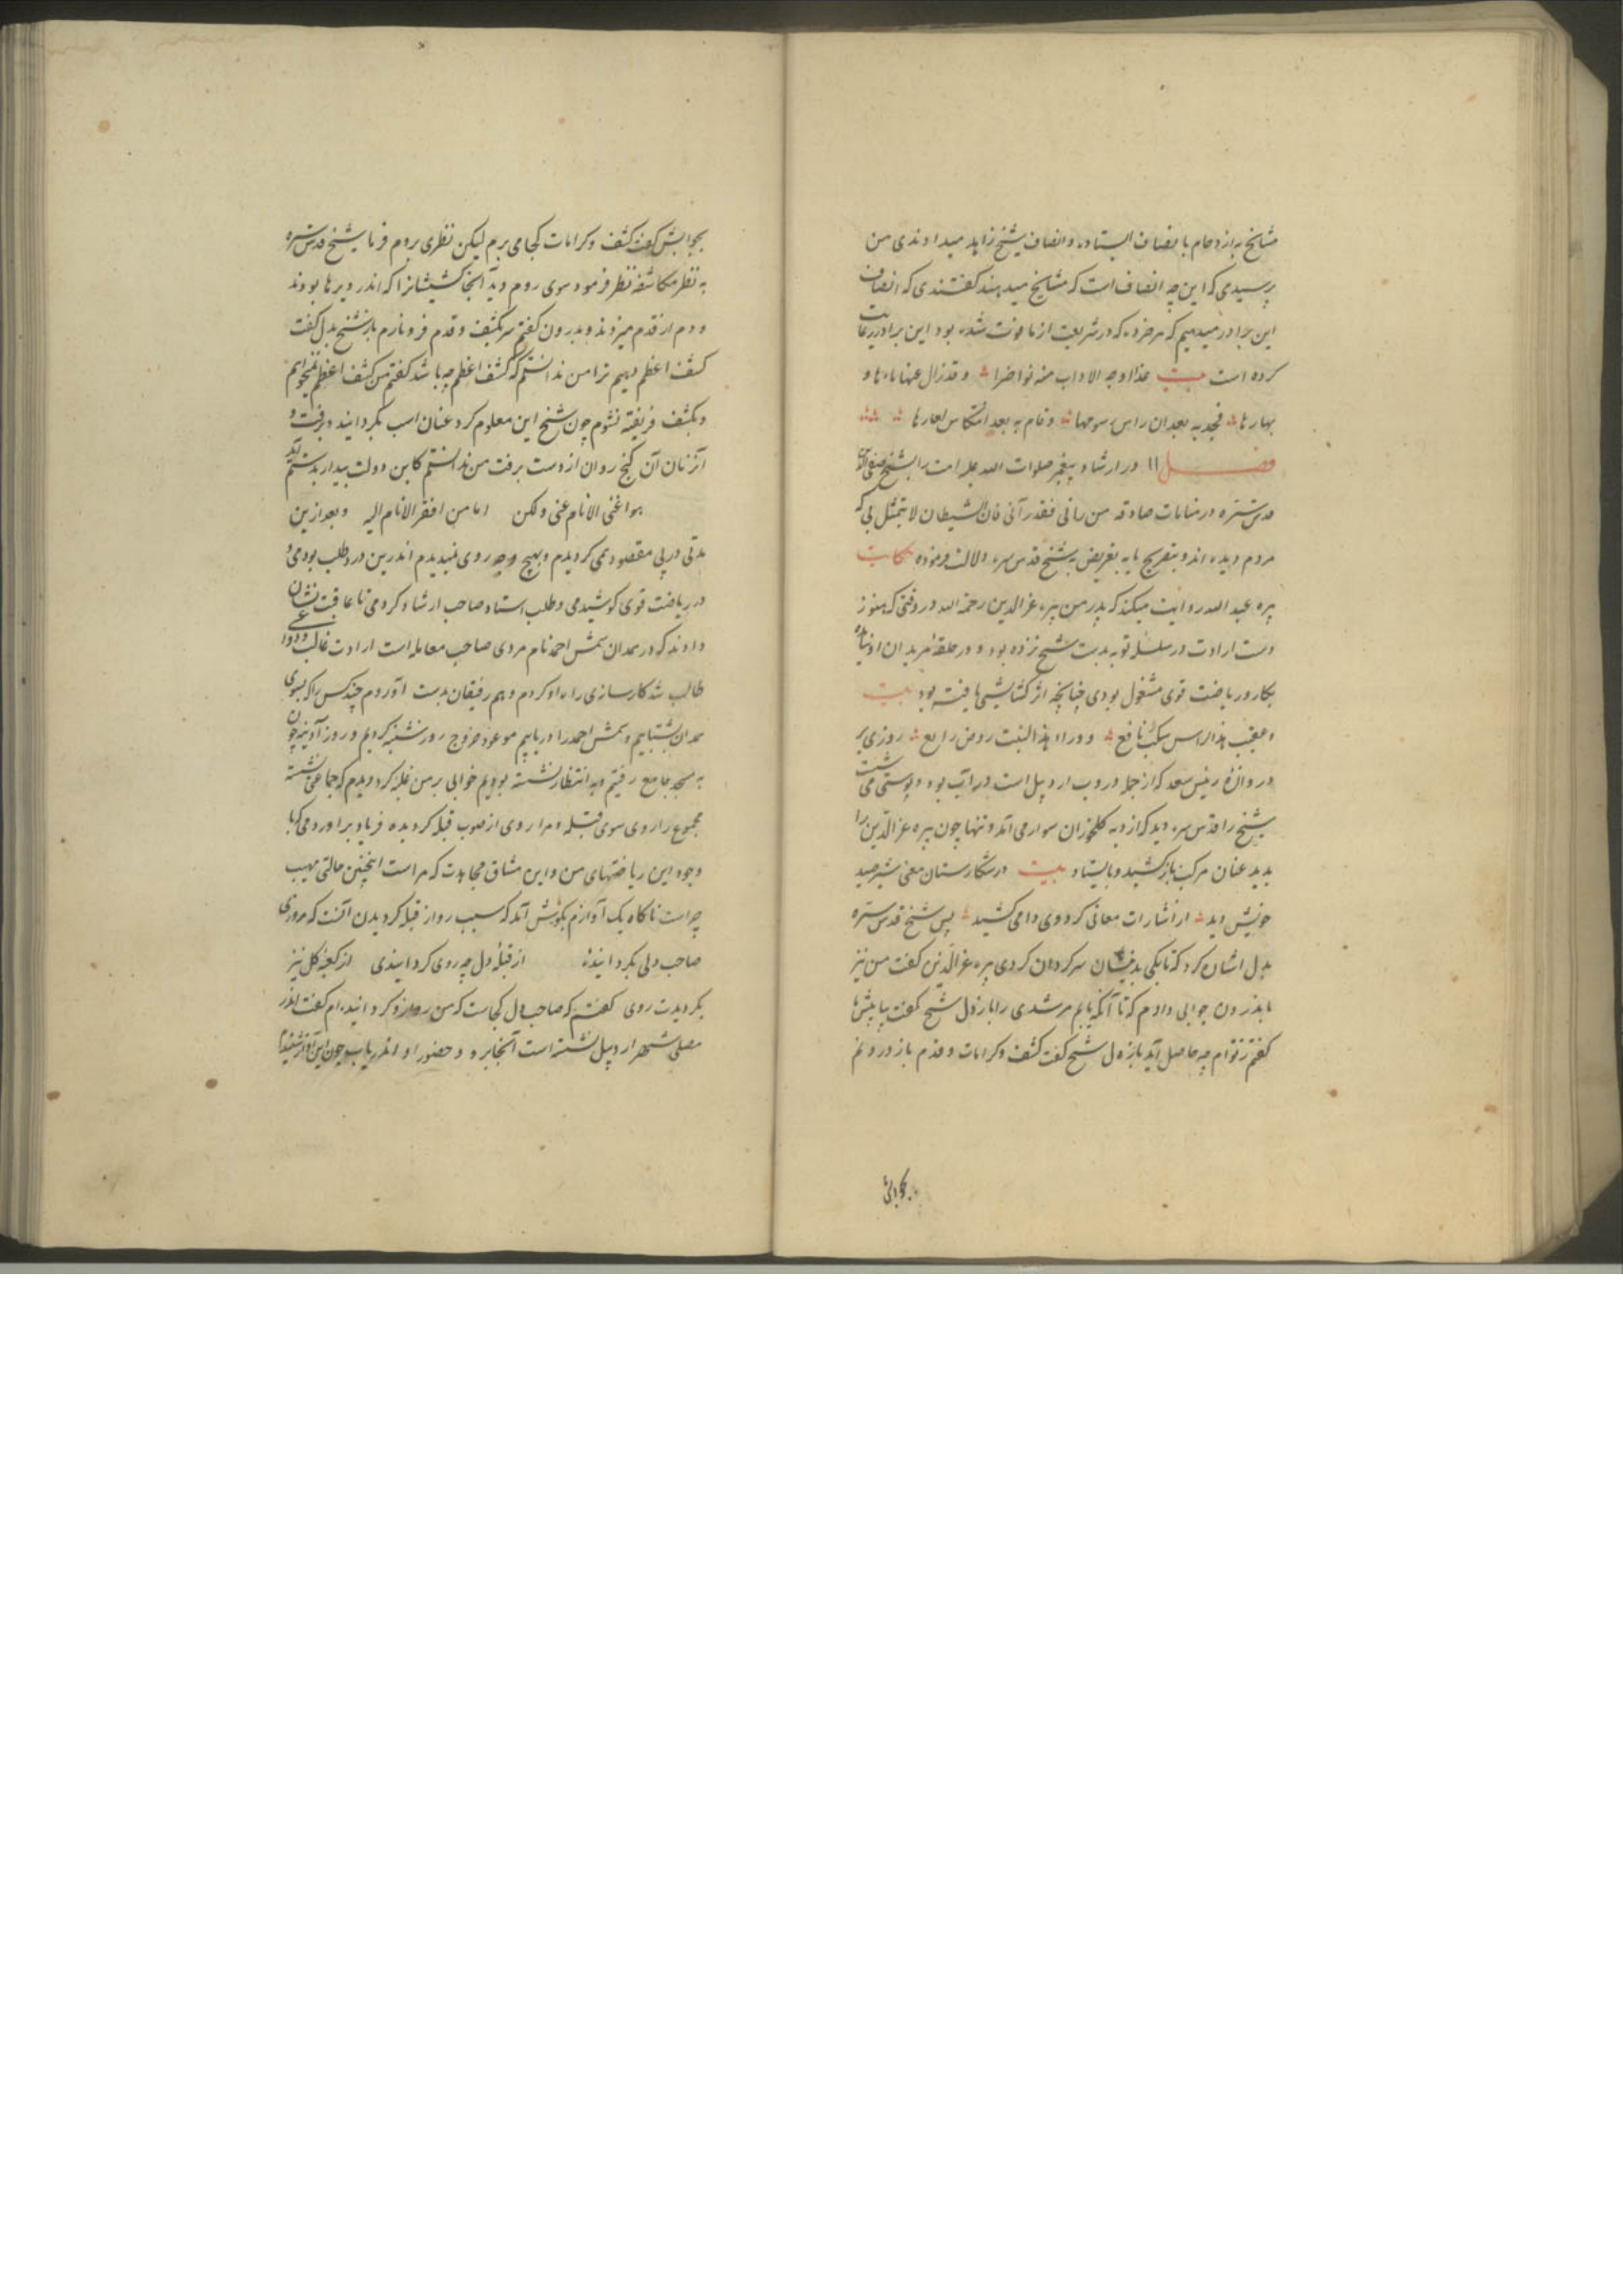 مشایخ به ازدحام بانصاف ایستاده و انصاف شیخ زاهد میدادندی من
پرسیدی که این چه انصاف است که مشایخ میدهند گفتندی که انصاف
این برادر میدهیم که هر خرده که در شریعت از ما فوت شده بود این برادر رعایت
کرده است بیت غذا وجه الاداب منه نواضرا و قد زال عنها ماءها و
بهارها فجد به بعد ان راس سومها و قام به بعد انتکاس
فصل ۱۱ در ارشاد پیغمبر صلوات الله علیه امت را بشیخ صفی الدین
قدس سره در منامات صادقه من رانی فقد رآنی فان الشیطان لا یتمثل بی که
مردم دیده اند و بتصریح یا به تعریض به شیخ قدس سره دلالت فرموده حکایت
پیره عبدالله روایت میکند که پدر من پیره عزالدین رحمة الله در وقتی که هنوز
دست ارادت در سلسله توبه بدست شیخ نزده بود و در حلقه مریدان او نیامده
بکار و ریاضت قوی مشغول بودی چنانچه اثر کشایشها یافته بود بیت
و عقیب هذا الراس نافع و وراء هذا النبت روض رایع روزی بر
دروازهٔ رئیس سعد که از جمله دروب اردبیل است در آب بود و پوستی می شست
شیخ را قدس سره دید که از دیه کلخوران سوار می آمد و تنها چون پیره عزالدین را
بدید عنان مرکب باز کشید و بایستاد بیت در شکارستان معنی شیر صید
خویش دید از اشارات معانی کرد وی دامی کشید پس شیخ قدس سره
بدل اشارت کرد که تا بکی بدینسان سرگردان گردی پیره عزالدین گفت من نیز
باندرون جوابی دادم که تا آنگه یابم مرشدی را باز دل شیخ گفت بیا پیش ما
گفتم ز توام چه حاصل آید باز دل شیخ گفت کشف و کرامات و قدم باز درونم
بجوابش
بجوابش گفت کشف و کرامات کجا می برم لیکن نظری بروم فرما شیخ قدس سره
به نظر مکاشفه نظر فرمود سوی روم دید آنجا کشیشانرا که اندر دیرها بودند
و دم از قدم میزدند و بدرون گفتم سر بکشف و قدم فرو نارم باز شیخ بدل گفت
کشف اعظم دهیم ترا من ندانستم که کشف اعظم چه باشد گفتم من کشف اعظم نمیخواهم
و بکشف فریفته نشوم چون شیخ این معلوم کرد عنان اسب بگردانید و برفت و
آن زمان آن گنج روان از دست برفت من ندانستم کاین دولت بیدار بدستم آمد
هو اغنی الانام عنی ولکن انا من افقر الانام الیه و بعد ازین
مدتی در پی مقصود همی گردیدم و بهیچ وجه روی نمیدیدم اندرین درد طلب بودمی و
در ریاضت قوی کوشیدمی و طلب استاد صاحب ارشاد کردمی تا عاقبت نشان
دادند که در همدان شمس احمد نام مردی صاحب معامله است ارادت غالب و دواعی
طالب شد کارسازی راه او کردم و هم رفیقان بدست آوردم چند کس را که بسوی
همدان بشتابیم و شمس احمد را دریابیم موعود خروج روز شنبه کردیم و روز آدینه چون
به مسجد جامع رفتیم و به انتظار نشسته بودیم خوابی بر من غلبه کرد دیدم که جماعتی نشسته
مجموع را روی سوی قبله و مرا روی از صوب قبله گردیده فریاد برآوردمی که با
وجود این ریاضتهای من و این مشاق مجاهدت که مراست اینچنین حالتی مهیب
چراست ناگاه یک آوازم بگوش آمد که سبب رو از قبله گردیدن آنست که مرو روی
صاحب دلی بگردانیدهٔ از قبلهٔ دل چه روی گردانیدی از کعبهٔ گل نیز
بگردیدت روی گفتم که صاحب دل کجاست که من رو ازو گردانیده ام گفت اندر
مصلی شهر اردبیل نشسته است آنجا برو و حضور او اندریاب چون این آواز شنیدم